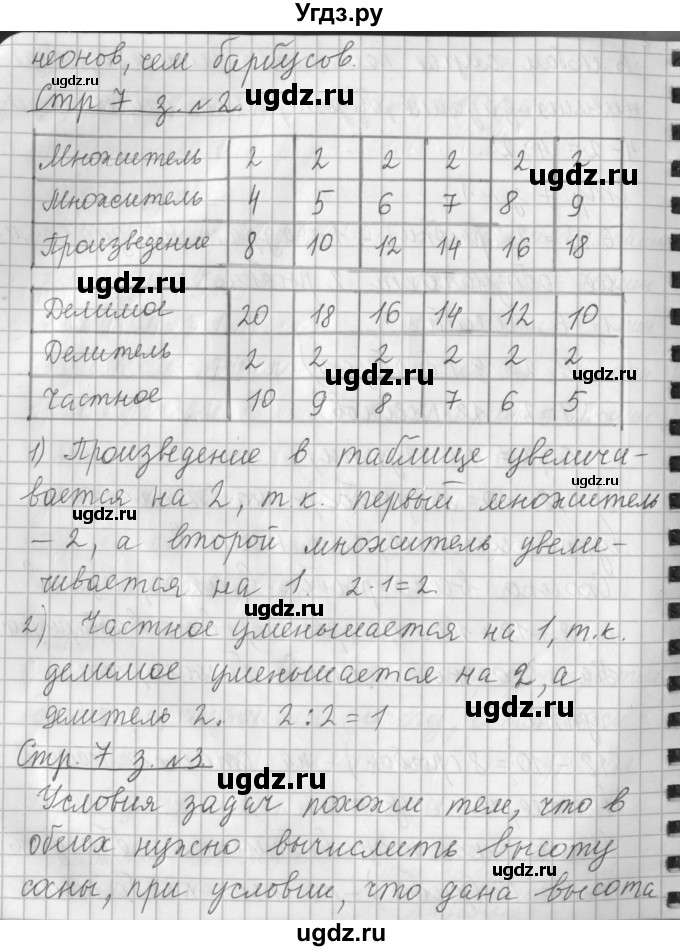 Угдз.ру
неонов, чем барбусов.
Стр 7 з. №2.
Множитель 2 2 2 2 2 2
Множитель 4 5 6 7 8 9
Произведение 8 10 12 14 16 18
Делимое 20 18 16 14 12 10
Делитель 2 2 2 2 2 2
Частное 10 9 8 7 6 5
1) Произведение в таблице увеличи-
вается на 2, т.к. первый множитель
– 2, а второй множитель увели-
чивается на 1. 2·1=2.
2) Частное уменьшается на 1, т.к.
делимое уменьшается на 2, а
делитель 2. 2:2=1
Стр. 7 з. №3.
Условия задач похожи тем, что в
обеих нужно вычислить высоту
сосны, при условии, что дана высота
ugdz.ru